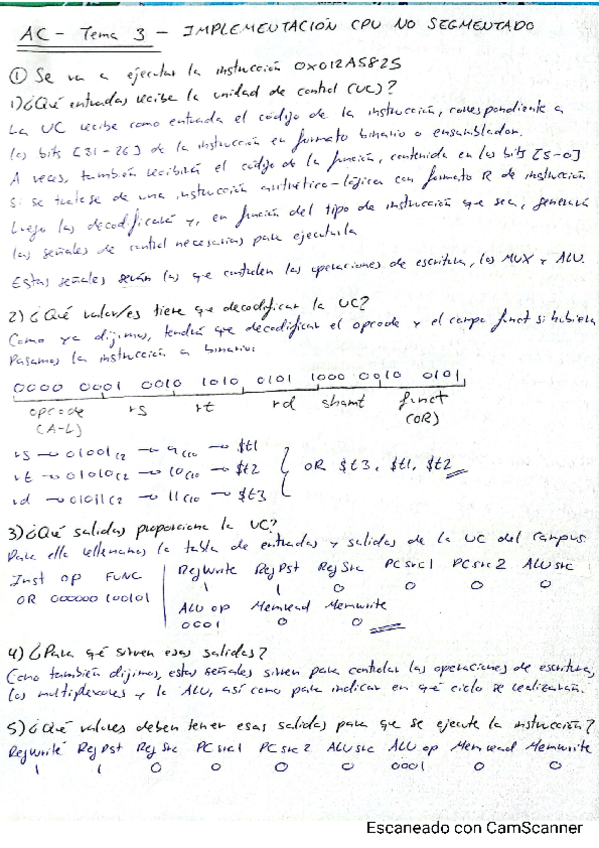 AC - Tema 3 - IMPLEMENTACIÓN CPU NO SEGMENTADO
① Se va a ejecutar la instrucción 0x012A5825
1) ¿Qué entradas recibe la unidad de control (UC)?
La UC recibe como entrada el código de la instrucción, correspondiente a
los bits [31-26] de la instrucción en formato binario o ensamblador.
A veces, también recibirá el código de la función, contenida en los bits [5-0]
si se tratase de una instrucción aritmético-lógica con formato R de instrucción
Luego las decodificará y, en función del tipo de instrucción que sea, generará
las señales de control necesarias para ejecutarla
Estas señales serán las que controlen las operaciones de escritura, los MUX y ALU.
2) ¿Qué valor/es tiene que decodificar la UC?
Como ya dijimos, tendrá que decodificar el opcode y el campo funct si hubiera
Pasamos la instrucción a binario:
0000 0001 0010 1010 0101 1000 0010 0101
opcode rs rt rd shamt funct
(A-L) (OR)
rs → 01001(2 → 9(10 → $t1
rt → 01010(2 → 10(10 → $t2 OR $t3, $t1, $t2
rd → 01011(2 → 11(10 → $t3
3) ¿Qué salidas proporciona la UC?
Para ello rellenamos la tabla de entradas y salidas de la UC del campus
Inst OP FUNC RegWrite RegDst RegSrc PCsrc1 PCsrc2 ALUsrc
OR 000000 100101 1 1 0 0 0 0
ALUop Memread Memwrite
0001 0 0
4) ¿Para qué sirven esas salidas?
Como también dijimos, estas señales sirven para controlar las operaciones de escritura,
los multiplexores y la ALU, así como para indicar en qué ciclo se realizarán.
5) ¿Qué valores deben tener esas salidas para que se ejecute la instrucción?
RegWrite RegDst RegSrc PCsrc1 PCsrc2 ALUsrc ALUop Memread Memwrite
1 1 0 0 0 0 0001 0 0
Escaneado con CamScanner